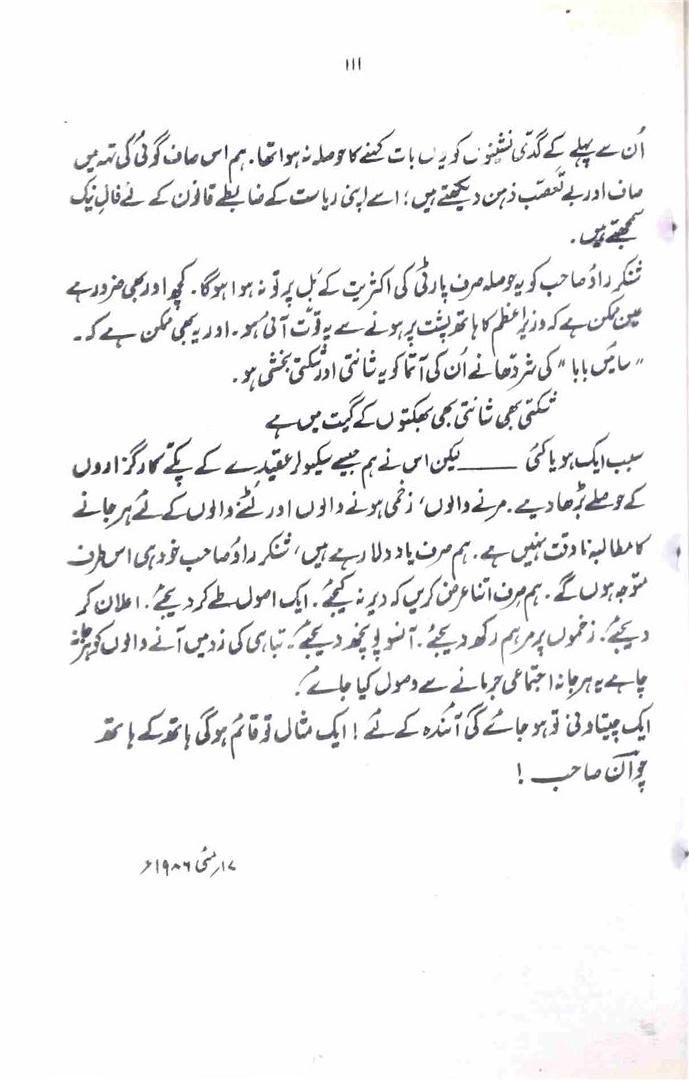 ۱۱۱
اُن سے پہلے کے گدّی نشینوں کو یہاں بات کہنے کا حوصلہ نہ ہوا تھا۔ ہم اس صاف گوئی کی تہہ میں
صاف اور بے تعصّب ذہن دیکھتے ہیں؛ اسے اپنی ریاست کے ضابطے قانون کے لئے فالِ نیک
سمجھتے ہیں۔
شنکر راؤ صاحب کو یہ حوصلہ صرف پارٹی کی اکثریت کے بَل پر تو نہ ہوا ہوگا۔ کچھ اور بھی ضرور ہے
عین ممکن ہے کہ وزیرِ اعظم کا ہاتھ پشت پر ہونے سے یہ قوّت آئی ہو۔ اور یہ بھی ممکن ہے کہ۔
"سائیں بابا" کی شردھا نے اُن کی آتما کو یہ شانتی اور شکتی بخشی ہو۔
شکتی بھی شانتی بھی بھگتوں کے گیت میں ہے
سبب ایک ہو یا کئی ــــــ لیکن اس نے ہم جیسے سیکولر عقیدے کے پکّے کارگزاروں
کے حوصلے بڑھا دیے۔ مرنے والوں، زخمی ہونے والوں اور لٹنے والوں کے لئے ہرجانے
کا مطالبہ ناوقت نہیں ہے۔ ہم صرف یاد دلا رہے ہیں، شنکر راؤ صاحب خود ہی اس طرف
متوجہ ہوں گے۔ ہم صرف اتنا عرض کریں کہ دیر نہ کیجئے۔ ایک اصول طے کر دیجئے۔ اعلان کر
دیجئے۔ زخموں پر مرہم رکھ دیجئے۔ آنسو پونچھ دیجئے۔ تباہی کی زد میں آنے والوں کو ہرجانہ
چاہے یہ ہرجانہ اجتماعی جرمانے سے وصول کیا جائے۔
ایک چیتاونی تو ہو جائے گی آئندہ کے لئے! ایک مثال تو قائم ہوگی ہاتھ کے ہاتھ
چوہان صاحب!
۱۷؍ مئی ۱۹۸۶ء